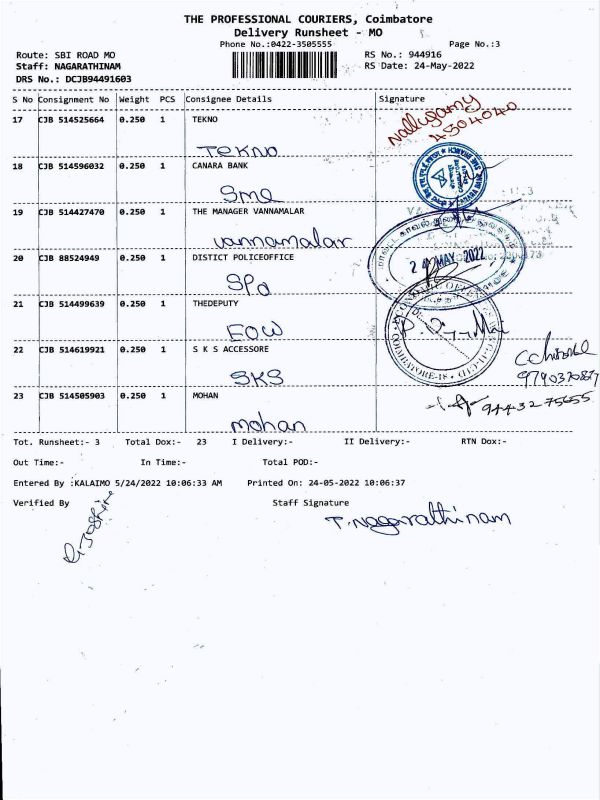 THE PROFESSIONAL COURIERS, Coimbatore
Delivery Runsheet - MO
Phone No.:0422-3505555
Page No.:3
Route: SBI ROAD MO
RS No.: 944916
Staff: NAGARATHINAM
RS Date: 24-May-2022
DRS No.: DCJB94491603
S No Consignment No Weight PCS Consignee Details Signature
17 CJB 514525664 0.250 1 TEKNO
4504040
TEKNO
18 CJB 514596032 0.250 1 CANARA BANK
SME
19 CJB 514427470 0.250 1 THE MANAGER VANNAMALAR
vannamalar
20 CJB 88524949 0.250 1 DISTICT POLICEOFFICE
24 MAY 2022
SPO
21 CJB 514499639 0.250 1 THEDEPUTY
EOW
COIMBATORE-18
22 CJB 514619921 0.250 1 S K S ACCESSORE
SKS
23 CJB 514505903 0.250 1 MOHAN
9443275655
mohan
Tot. Runsheet:- 3 Total Dox:- 23 I Delivery:- II Delivery:- RTN Dox:-
Out Time:- In Time:- Total POD:-
Entered By :KALAIMO 5/24/2022 10:06:33 AM Printed On: 24-05-2022 10:06:37
Verified By Staff Signature
T. Nagarathinam